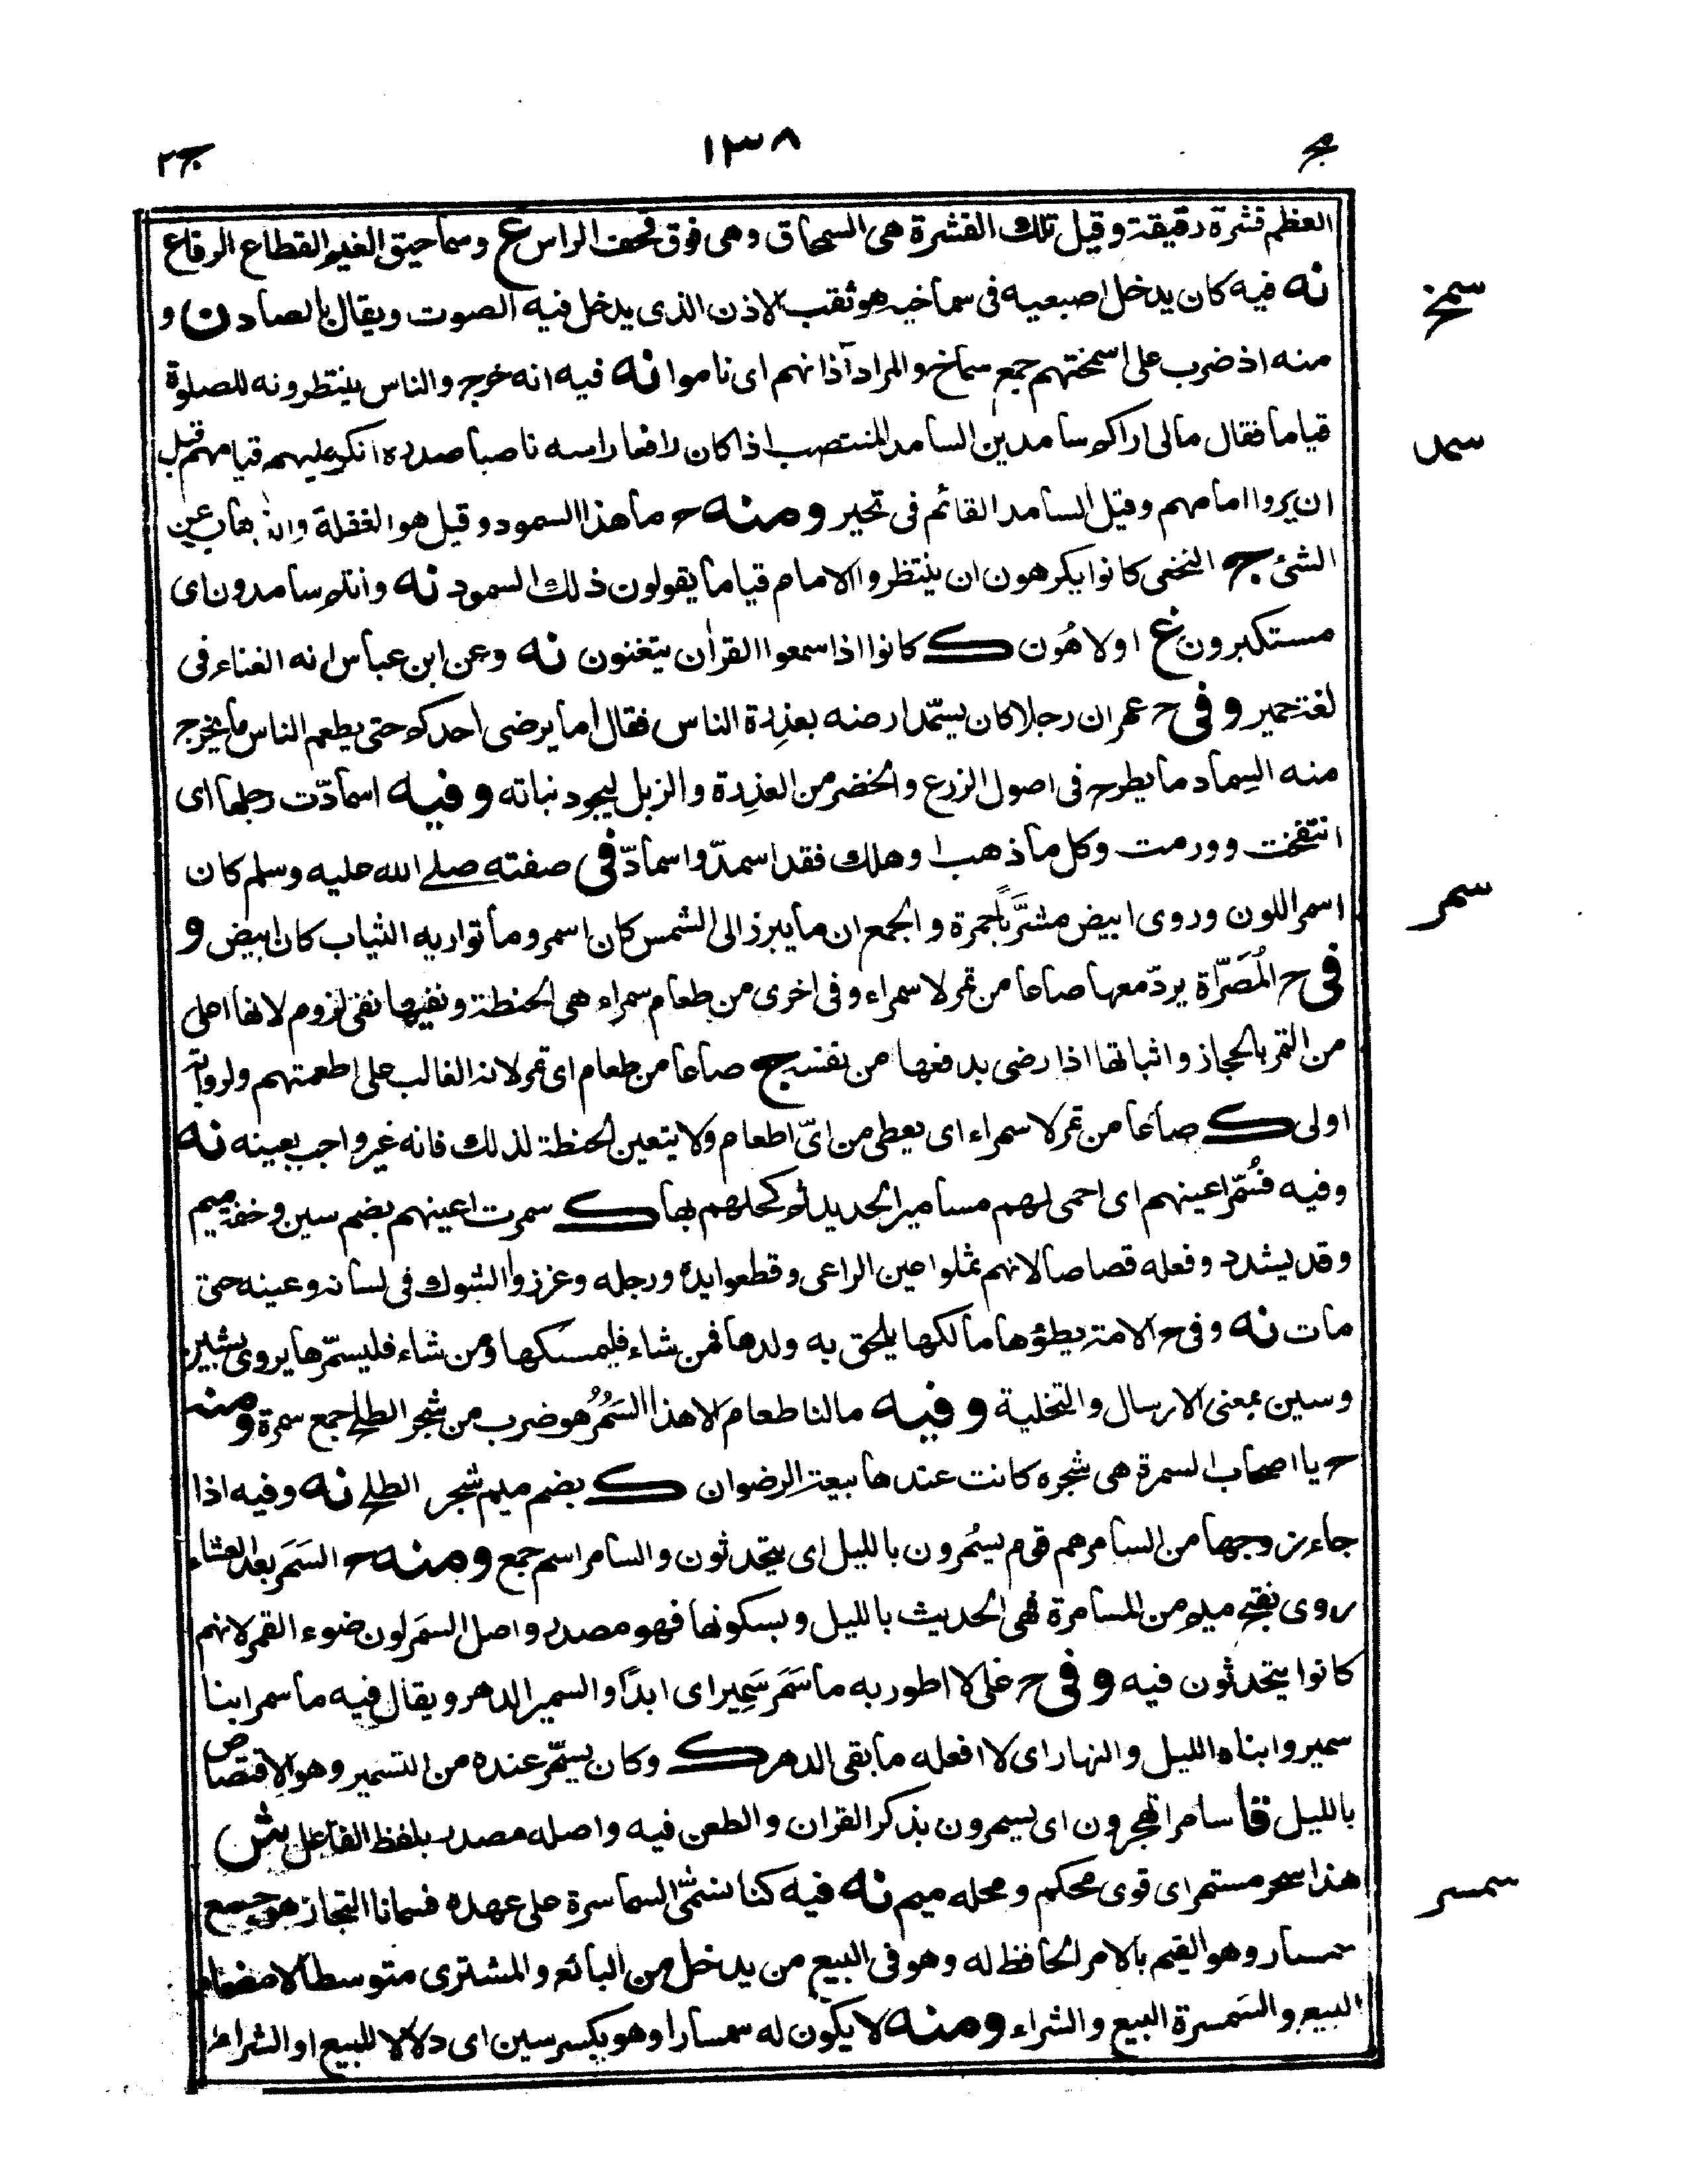 مج
١٣٨
ج٢
العظم قشرة رقيقة وقيل تلك القشرة هى السمحاق وهى فوق قحف الراس غ وسماحيق الغيم القطاع الرقاع
سمخ
نه فيه كان يدخل اصبعيه فى سماخيه هو ثقب الاذن الذى يدخل فيه الصوت ويقال بالصاد ن و
منه اذ ضرب على اسمختهم جمع سماخ والمراد آذانهم اى ناموا نه فيه انه خرج والناس ينتظرونه للصلوة
سمد
قياما فقال مالى اراكم سامدين السامد المنتصب اذا كان رافعا راسه ناصبا صدره انكر عليهم قيامهم قبل
ان يروا امامهم وقيل السامد القائم فى تحير ومنه ح ما هذا السمود وقيل هو الغفلة والذهاب عن
الشئ ج النخعى كانوا يكرهون ان ينتظروا الامام قياما يقولون ذلك السمود نه وانتم سامدون اى
مستكبرون غ اولاهُون ك كانوا اذا سمعوا القران يتغنون نه وعن ابن عباس انه الغناء فى
لغة حمير وفى ح عمر ان رجلا كان يسمّد ارضه بعذِرة الناس فقال اما يرضى احدكم حتى يطعم الناس ما يخرج
منه السِماد ما يطرح فى اصول الزرع والخضر من العذِرة والزبل ليجود نباته وفيه اسمادّت رجلها اى
انتفخت وورمت وكل ما ذهب اوهلك فقد اسمدّ واسمادّ فى صفته صلے الله عليه وسلم كان
سمر
اسمر اللون وروى ابيض مشرَّبا حمرة والجمع ان ما يبرز الى الشمس كان اسمر وما تواريه الثياب كان ابيض و
فى ح المُصَرّاة يردّ معها صاعا من تمر لا سمراء وفى اخرى من طعام سمراء هى الحنطة ونفيها نفى لزوم لانها اعلى
من التمر بالحجاز واثباتها اذا رضى بدفعها من نفسه ج صاعا من طعام اى تمر لانه الغالب على اطعمتهم ولرواية
اولى ك صاعا من تمر لا سمراء اى يعطى من اىّ اطعام ولا يتعين الحنطة لذلك فانه غير واجب بعينه نه
وفيه فسُمّر اعينهم اى احمى لهم مسامير الحديد ثم كحلهم بها ك سمرت اعينهم بضم سين وخفة ميم
وقد يشدد وفعله قصاصا لانهم ثملوا عين الراعى وقطعوا يده ورجله وغرزوا الشوك فى لسانه وعينه حتى
مات نه وفى ح الامة يطؤها مالكها يلحق به ولدها فمن شاء فليمسكها ومن شاء فليسمّرها يروى بشين
وسين بمعنى الارسال والتخلية وفيه مالنا طعام الا هذا السَمُرُ هو ضرب من شجر الطلح جمع سمرة ومنه
ح يا اصحاب السمرة هى شجره كانت عندها بيعة الرضوان ك بضم ميم شجر الطلح نه وفيه اذا
جاء زوجها من السامر هم قوم يسمُرون بالليل اى يتحدثون والسامر اسم جمع ومنه ح السَمَر بعد العشاء
روى بفتح ميم من المسامرة فهى الحديث بالليل وبسكونها فهو مصدر واصل السمَر لون ضوء القمر لانهم
كانوا يتحدثون فيه وفى ح على لا اطور به ما سَمَر سَمير اى ابدًا والسمير الدهر ويقال فيه ما سمر ابنا
سمير وابناه الليل والنهار اى لا افعله ما بقى الدهر ك وكان يسمّر عنده من التسمير وهو الاقتصاص
بالليل قا سامرا تهجرون اى يسمرون بذكر القران والطعن فيه واصله مصدر بلفظ الفاعل ش
هذا سحر مستمر اى قوى محكم ومحله ميم نه فيه كنا نسمّى السماسرة على عهده فسمانا التجار هو جمع
سمسر
سمسار وهو القيم بالامر الحافظ له وهو فى البيع من يدخل بين البائع والمشترى متوسطا لامضاء
البيع والسَمسرة البيع والشراء ومنه لا يكون له سمسارا وهو بكسر سين اى دلالا للبيع او الشراء